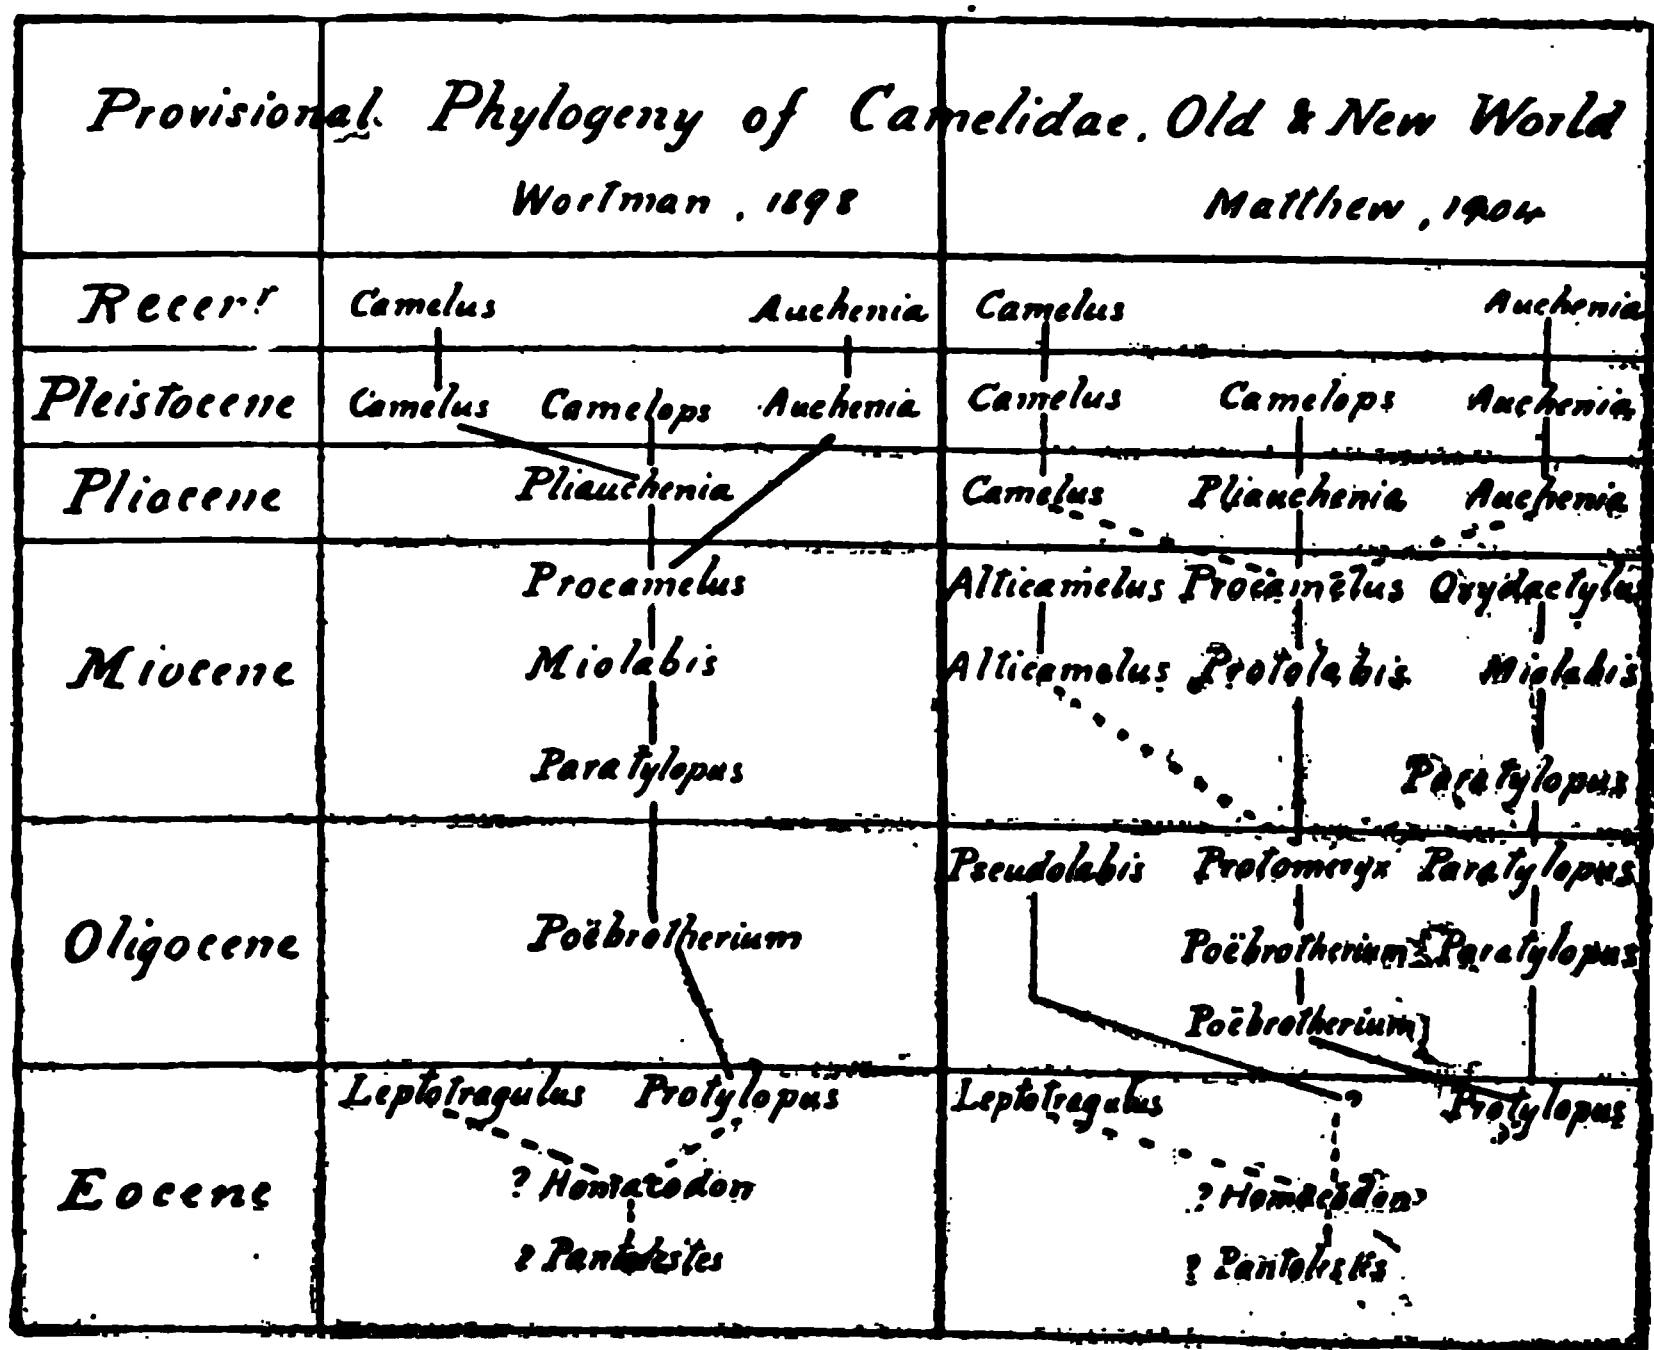 Provisional Phylogeny of Camelidae, Old & New World
Wortman, 1898
Matthew, 1904
Recent
Camelus Auchenia
Camelus Auchenia
Pleistocene
Camelus Camelops Auchenia
Camelus Camelops Auchenia
Pliocene
Pliauchenia
Camelus Pliauchenia Auchenia
Miocene
Procamelus
Miolabis
Paratylopus
Alticamelus Procamelus Oxydactylus
Alticamelus Protolabis Miolabis
Paratylopus
Oligocene
Poëbrotherium
Pseudolabis Protomeryx Paratylopus
Poëbrotherium Paratylopus
Poëbrotherium
Eocene
Leptotragulus Protylopus
? Homacodon
? Pantolestes
Leptotragulus ? Protylopus
? Homacodon?
? Pantolestes